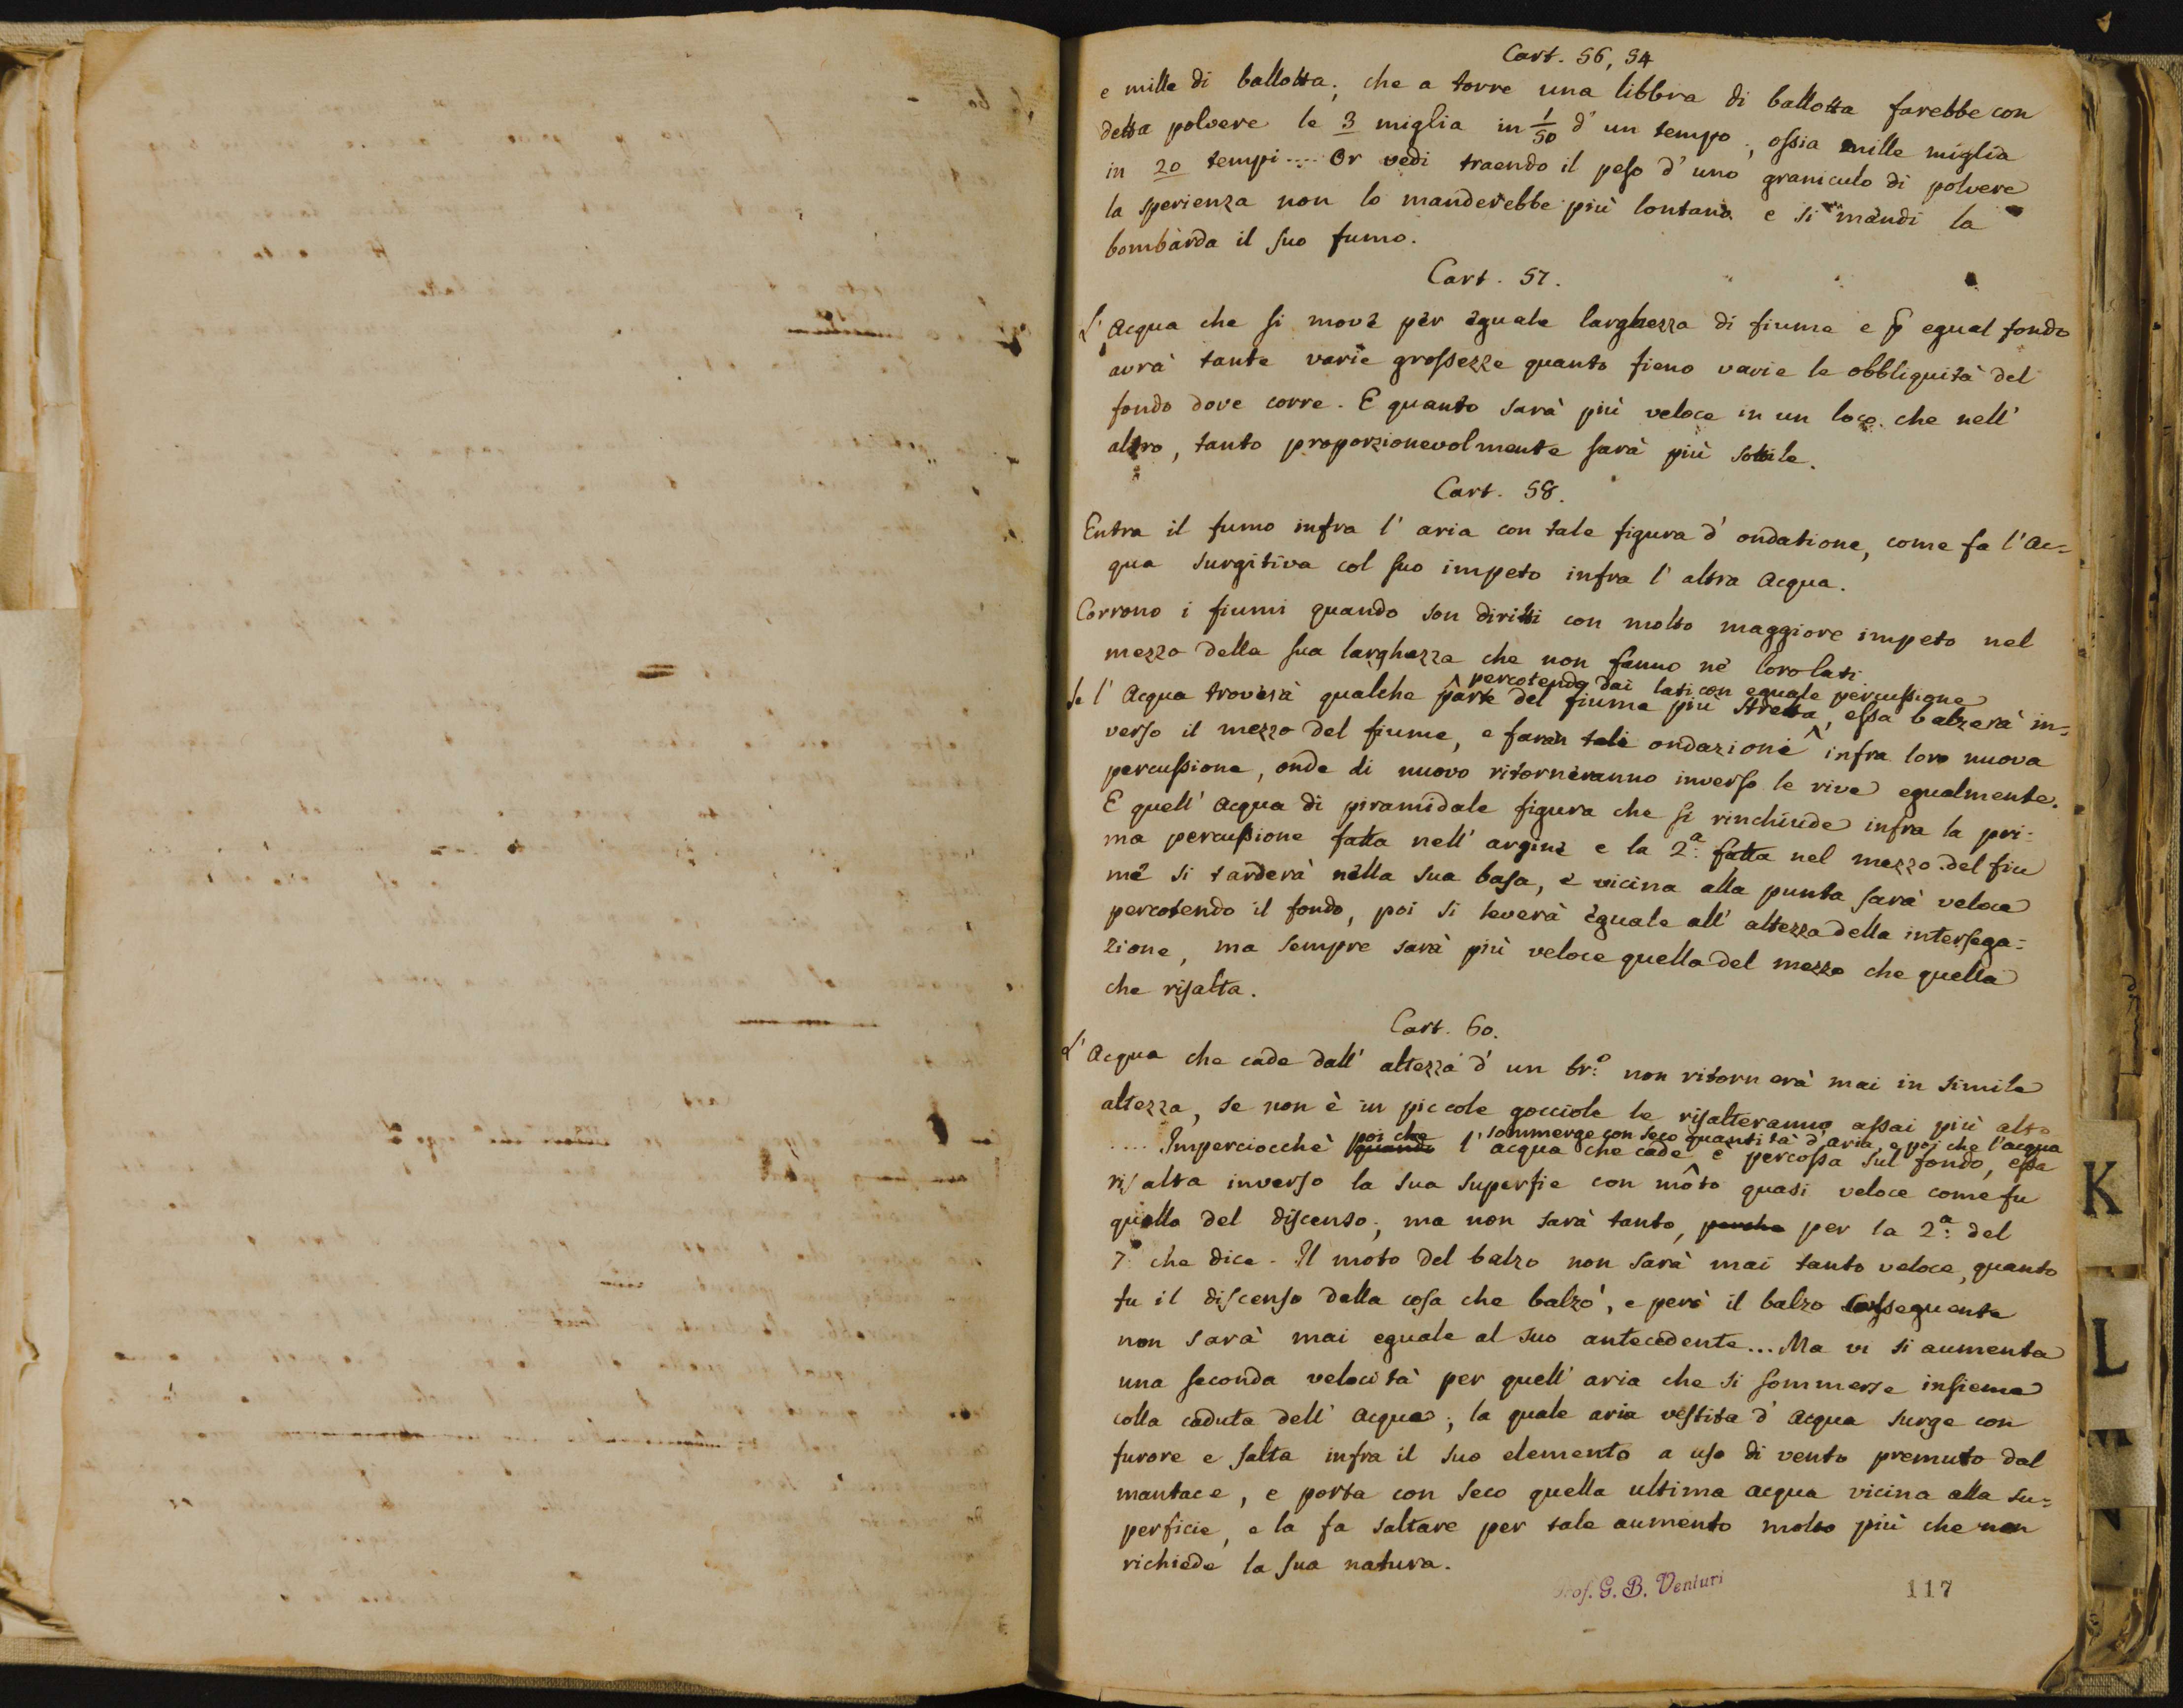 Cart. 56, 54
e mille di ballotta; che a torre una libbra di ballotta farebbe con
detta polvere le 3 miglia in 1/50 d' un tempo, ossia mille miglia
in 20 tempi.... Or vedi traendo il peso d' uno graniculo di polvere
la sperienza non lo manderebbe più lontano e si mandi la
bombarda il suo fumo.
Cart. 57.
L' Acqua che si move per eguale larghezza di fiume e p̄ egual fondo
avrà tante varie grossezze quanto fieno varie le obbliquità del
fondo dove corre. E quanto sarà più veloce in un loco che nell'
altro, tanto proporzionevolmente sarà più sottile.
Cart. 58.
Entra il fumo infra l' aria con tale figura d' ondatione, come fa l' Ac=
qua surgitiva col suo impeto infra l' altra Acqua.
Corrono i fiumi quando son diritti con molto maggiore impeto nel
mezzo della sua larghezza che non fanno ne' loro lati
percotendo dai lati con eguale percussione
Se l' Acqua troverà qualche parte del fiume più stretta, essa balzerà in=
verso il mezzo del fiume, e faran tali ondazioni infra loro nuova
percussione, onde di nuovo ritorneranno inverso le rive egualmente.
E quell' Acqua di piramidale figura che si rinchiude infra la pri=
ma percussione fatta nell' argine e la 2.ª fatta nel mezzo del fiu
me si tarderà nella sua basa, e vicina alla punta sarà veloce
percotendo il fondo, poi si leverà eguale all' altezza della intersega=
zione, ma sempre sarà più veloce quella del mezzo che quella
che risalta.
Cart. 60.
L' Acqua che cade dall' altezza d' un br.º non ritornerà mai in simile
altezza, se non è in piccole gocciole le risalteranno assai più alto
poi che sommerge con seco quantità d' aria, e poi che l' acqua
.... Imperciocchè quando l' acqua che cade è percossa sul fondo, essa
risalta inverso la sua superfie con moto quasi veloce come fu
quello del discenso; ma non sarà tanto, perche per la 2.ª del
7.º che dice. Il moto del balzo non sarà mai tanto veloce, quanto
fu il discenso della cosa che balzò, e però il balzo consequente
non sarà mai eguale al suo antecedente... Ma vi si aumenta
una seconda velocità per quell' aria che si sommerse insieme
colla caduta dell' Acqua; la quale aria vestita d' Acqua surge con
furore e salta infra il suo elemento a uso di vento premuto dal
mantace, e porta con seco quella ultima acqua vicina alla su=
perficie, e la fa saltare per tale aumento molto più che non
richiede la sua natura.
Prof. G. B. Venturi
117
K
L
M
N